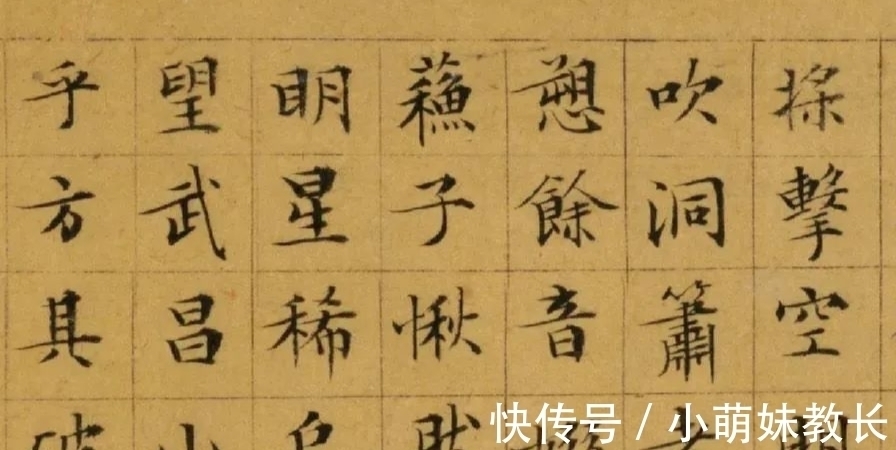 擊空
吹洞簫
愬餘音
蘓子愀
明星稀
望武昌
乎方其
快传号 / 小萌妹教长